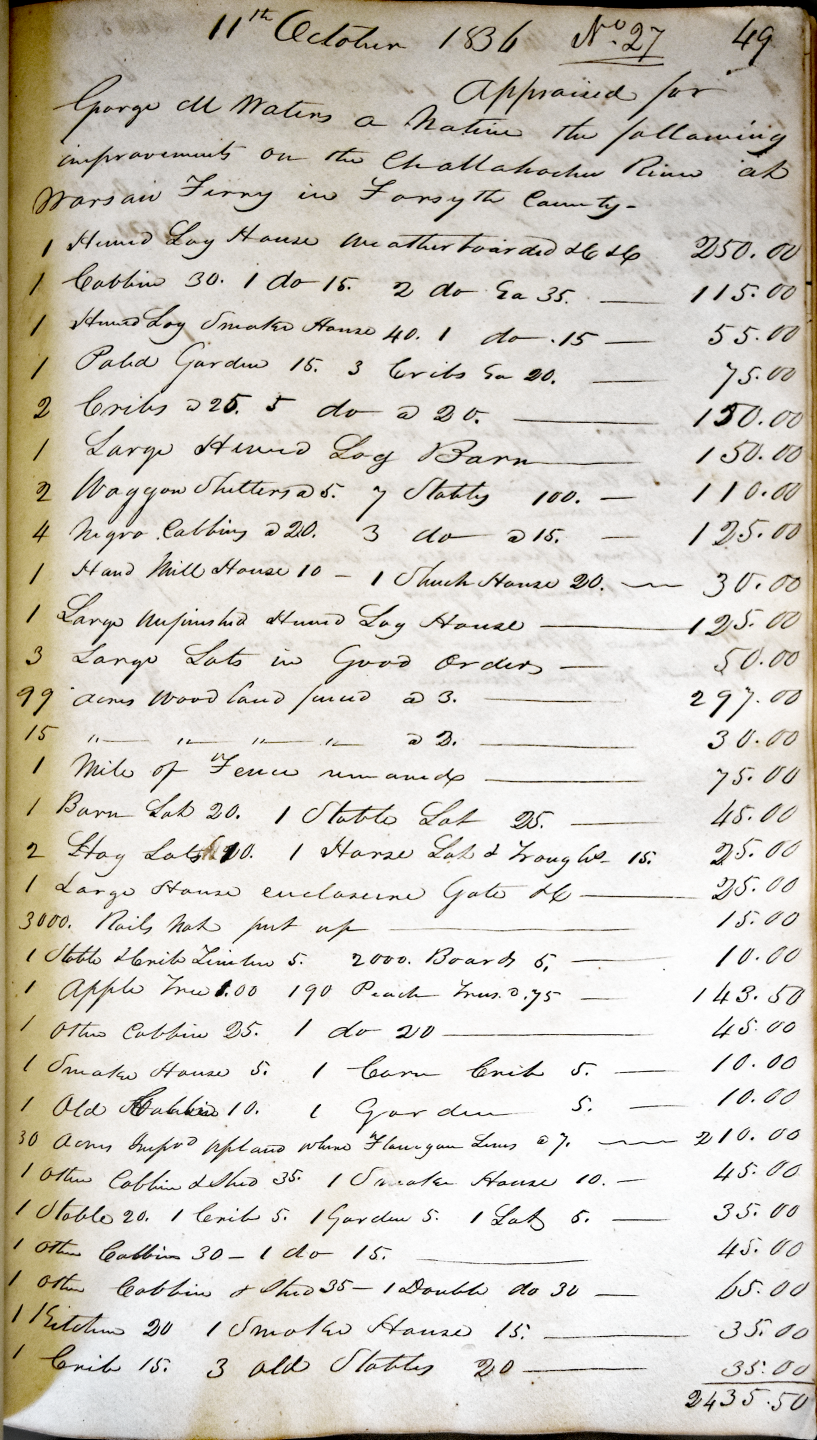 11th October 1836 No. 27 49
Appraised for
George M Waters a Native the following
improvements on the Chattahochee River at
Warsaw Ferry in Forsyth County-
1 Hewed Log House Weatherboarded &C &C 250.00
1 Cabbin 30. 1 do 15. 2 do Ea 35. — 115.00
1 Hewed Log Smoake House 40. 1 do .15 — 55.00
1 Paled Garden 15. 3 Cribs Ea 20. — 75.00
2 Cribs @ 25. 5 do @ 20. — 150.00
1 Large Hewed Log Barn — 150.00
2 Waggon Shelters @ 5. 7 Stables 100. — 110.00
4 Negro Cabbins @ 20. 3 do @ 15. — 125.00
1 Hand Mill House 10 – 1 Shuck House 20. — 30.00
1 Large Unfinished Hewed Log House — 125.00
3 Large Lots in Good Order — 50.00
99 acres Wood land fenced @ 3. — 297.00
15 " " " " @ 2. — 30.00
1 Mile of Fence — 75.00
1 Barn Lot 20. 1 Stable Lot 25. — 45.00
2 Hog Lots 10. 1 Horse Lot & Troughs - 15. 25.00
1 Large House enclosure Gate &C — 25.00
3000. Rails Not put up — 15.00
1 Stable & Crib Timber 5. 2000. Boards 5. — 10.00
1 Apple Tree 1.00 190 Peach Trees @ .75 — 143.50
1 Other Cabbin 25. 1 do 20 — 45.00
1 Smoake House 5. 1 Corn Crib 5. — 10.00
1 Old Cabbin 10. 1 Garden 5. — 10.00
30 Acres Impvd upland where Flanigan Lives @ 7. — 210.00
1 Other Cabbin & Shed 35. 1 Smoake House 10. – 45.00
1 Stable 20. 1 Crib 5. 1 Garden 5. 1 Lot 5. — 35.00
1 other Cabbin 30 – 1 do 15. — 45.00
1 other Cabbin & Shed 35 – 1 Double do 30 — 65.00
1 Kitchen 20 1 Smoake House 15. — 35.00
1 Crib 15. 3 old Stables 20 — 35.00
2435.50